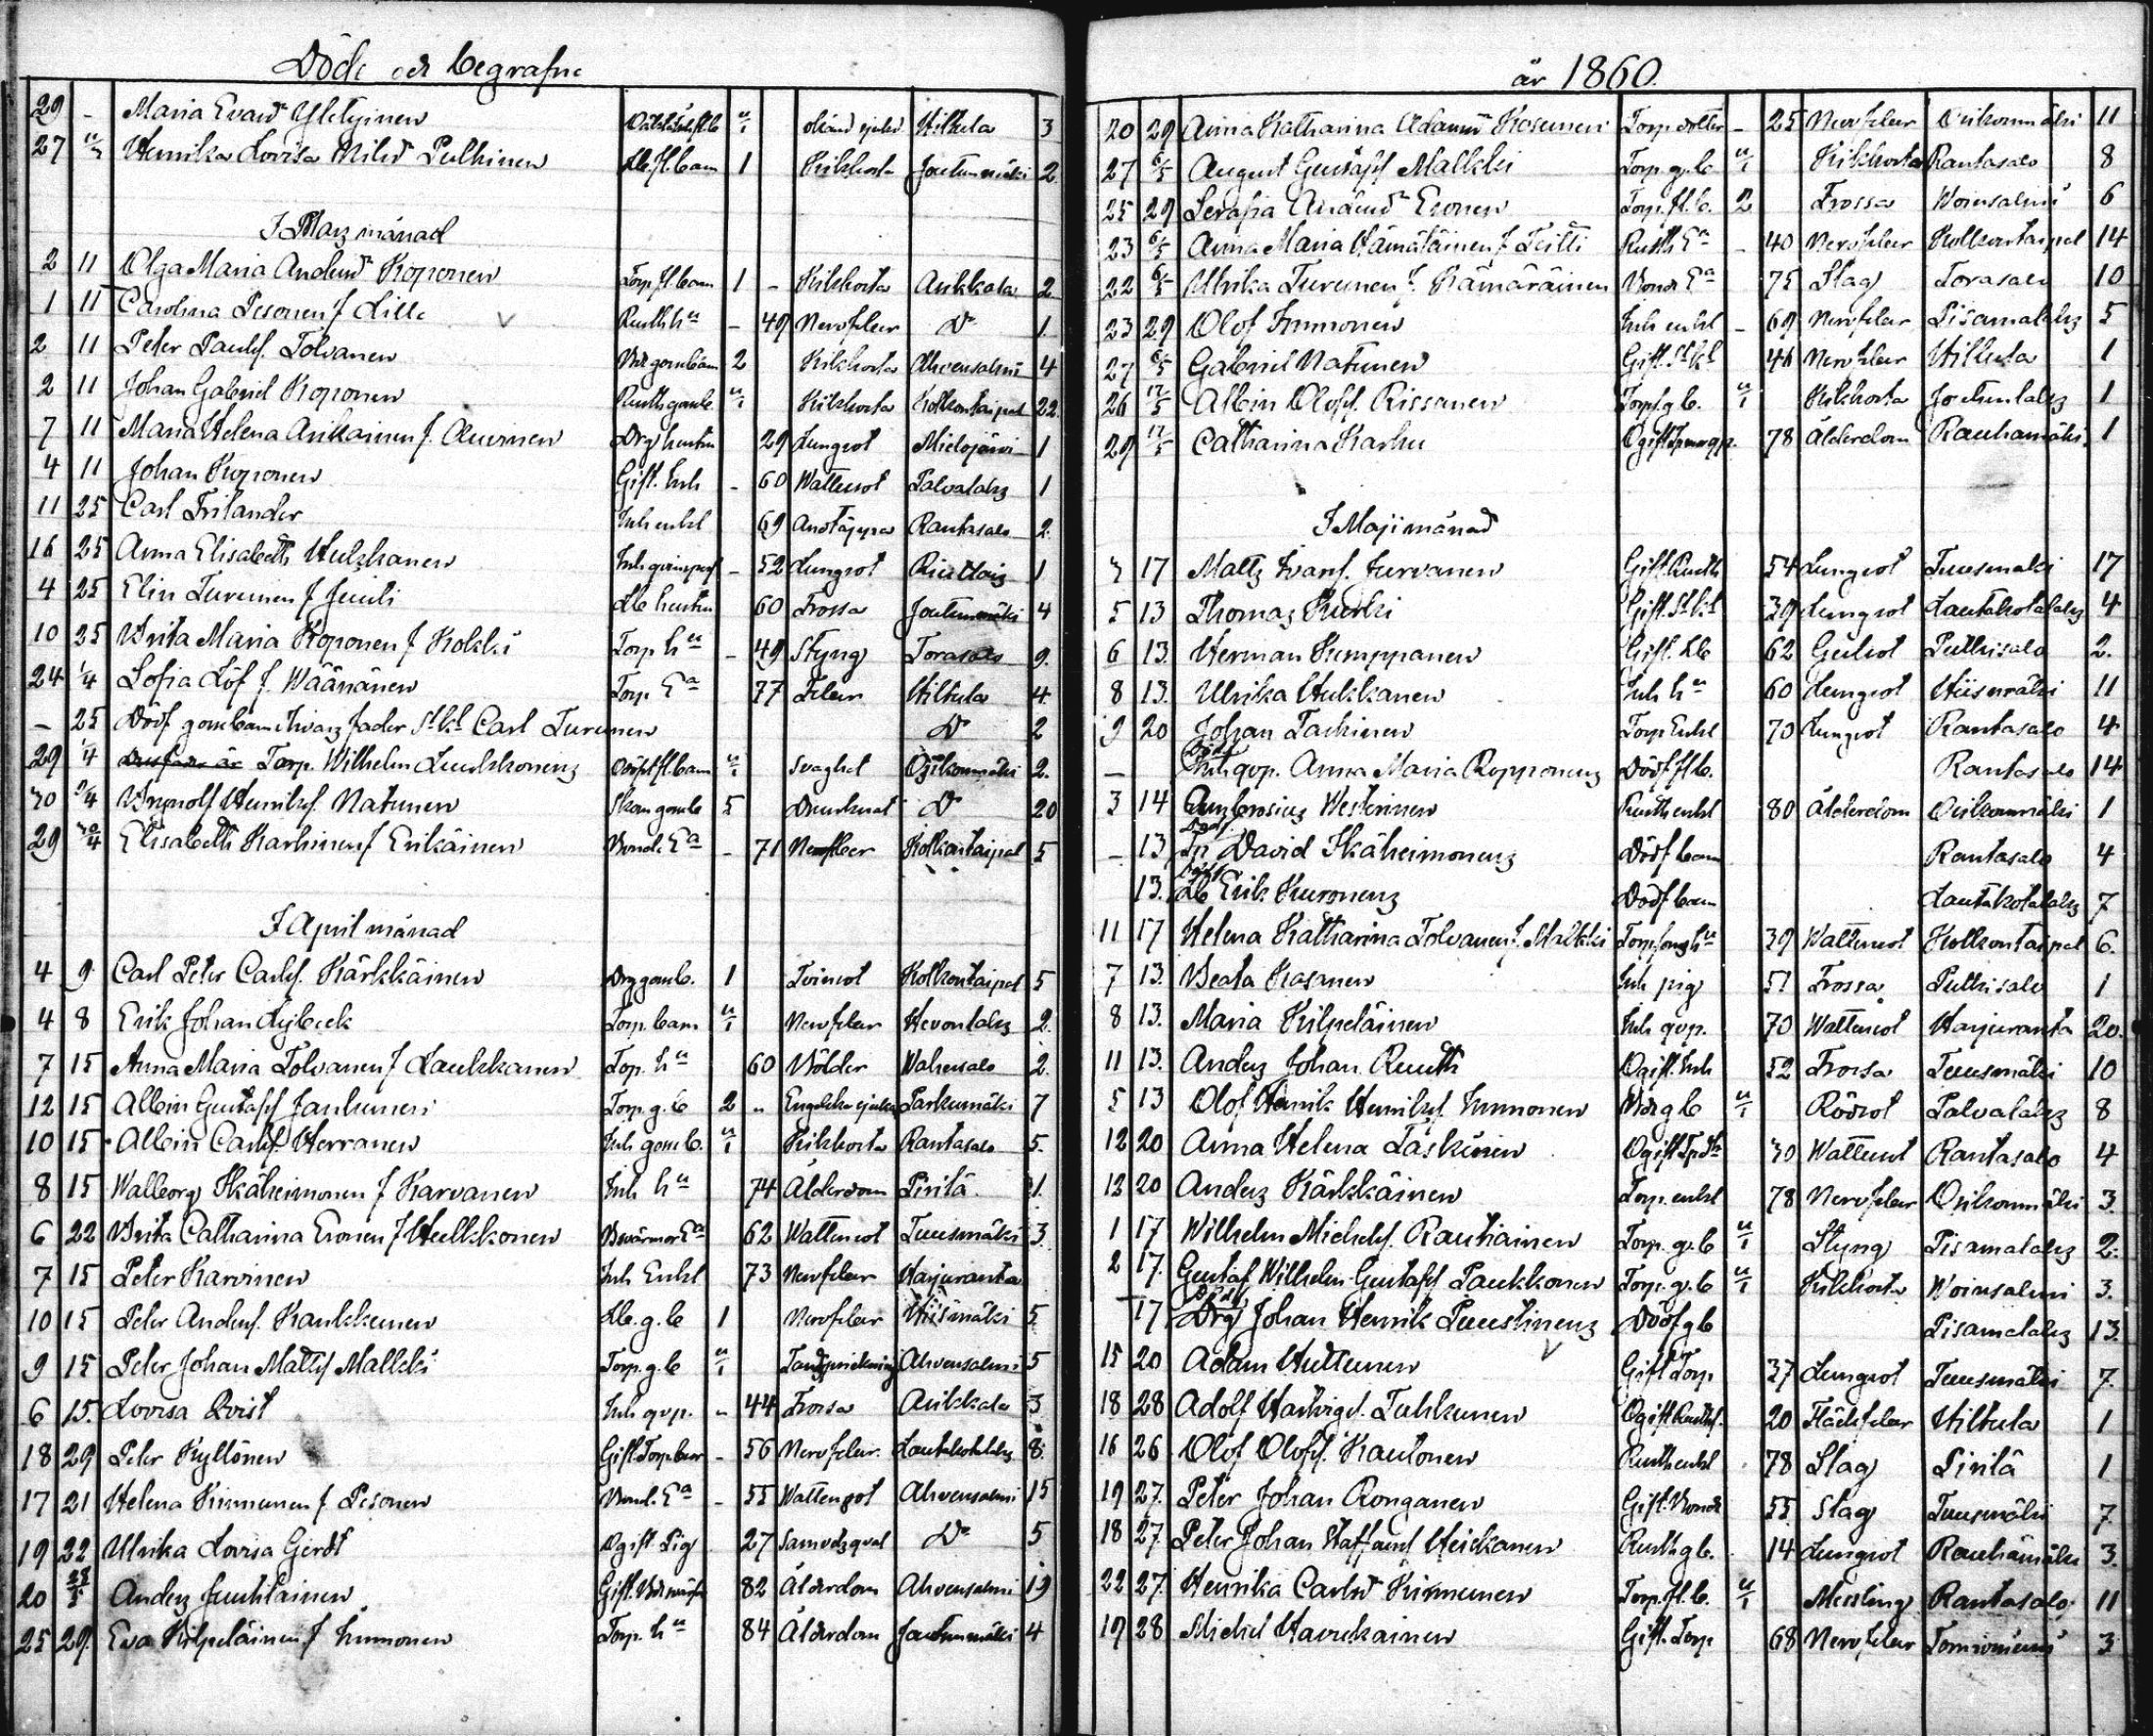 Döde och begrafne
29 - Maria Evad:r Yletyinen u/1 okänd sjukd Hiltula 3
27 Henrika Lovisa Nilsd Pulkinen Lb. fl. barn 1 Kikhosta Joutsenmäki 2
I Marz månad
2 11 Olga Maria Andersd:r Koponen Torp fl. barn 1 - Kikhosta Ankkala 2
1 11 Carolina Pesonen f Lille Rusth h:u - 49 Nervfeber D:o 1
2 11 Peter Paulss. Tolvanen 2 Kikhosta Ahvensalmi 4
2 11 Johan Gabriel Koponen Rusth gossb. u/1 Kikhosta Kolkontaipal 22
7 11 Maria Helena Asikainen f. Auvinen Drg hustru 29 Lungsot Mielojärvi 1
4 11 Johan Koponen Gift. Inh - 60 Wattusot Palvalaks 1
11 25 Carl Frilander Inh enkl 69 Andtäppa Rantasalo 2
16 25 Anna Elisabeth Hulzkanen - 52 Lungsot 1
4 25 Elin Turunen f Juuti Lb hustru 60 Frossa Joutsenmäki 4
10 25 Brita Maria Koponen f Kokki Torp h:u - 49 Styng Torasalo 9.
24 1/4 Sofia Löf f. Wäänänen Torp. E:a 77 Feber Hiltula 4
- 25 Dödf gossbarn hvars fader St:kl Carl Turunen D:o 2
29 1/4 Torp. Wilhelm Luukkonens u/1 Svaghet Ojikonmäki 2.
30 9/4 Brynolf Henrikss. Natunen gossb 5 Drunknat D:o 20
29 30/4 Elisabeth Karhinen f Erikäinen Bond. E:a - 71 Nervfeber Kolkontaipal 5
I April månad
4 9 Carl Peter Carlss. Kärkkäinen Drg gossb. 1 Tvinsot Kolkontaipal 5
4 8 Erik Johan Lybeck Torp. barn u/1 Nervfeber Hevonlaks 2.
7 15 Anna Maria Tolvanen f Laukkanen Torp. h:u 60 Bölder Wahersalo 2.
12 15 Albin Gustafss Janhunen Torp. g. b 2 " Engelska sjukan Parkumäki 7
10 15 Albin Carlss. Herranen Inh gossb. u/1 Kikhosta Rantasalo 5.
8 15 Walborg Ikäheimonen f Karvanen Inh h:u 74 Ålderdom Piritä 1.
6 22 Brita Catharina Eronen f Hulkkonen 62 Wattensot Tuusmäki 3
7 15 Peter Karvinen Inh Enkl 73 Nervfeber Harjuranta
10 15 Peter Anderss. Kankkunen Lb. g. b 1 Nervfeber Hiismäki 5
9 15 Peter Johan Mattss Malkki Torp. g. b u/1 Tandsprickning Ahvensalmi 5
6 15. Lovisa Qvist Inh qvp. - 44 Frossa Ankkala 3
18 29 Peter Kyllönen Gift. Torpare - 56 Nervfeber. Lautakotalaks 8.
17 21 Helena Kinnunen f Pesonen Bond. E:a - 55 Wattensot Ahvensalmi 15
19 22 Ulrika Lovisa Gerdt Ogift. Pig 27 Samvetsqval D:o 5
20 Anders Juuhlainen 82 Ålderdom Ahvensalmi 19
25 29. Eva Kilpeläinen f Immonen Torp. h:u 84 Ålderdom Joutsenmäki 4
år 1860.
20 29 Anna Katharina Adamsd Kosunen Torp. dotter - 25 Nervfeber Oikonmäki 11
27 6/5 August Gustafss Malkki Torp. g. b u/1 Kikhosta Rantasalo 8
25 29 Serafia Anderssd:r Eronen Torp. fl. b. 2 Frossa Woinsalmi 6
23 6/5 Anna Maria Hämäläinen f Teitti Rusth E:a - 40 Nervfeber Kolkontaipal 14
22 6/5 Ulrika Turunen f. Kämäräinen Bond E:a 75 Slag Torasalo 10
23 29 Olof Immonen Inh enkl - 69 Nervfeber Pisamalaks 5
27 6/5 Gabriel Natunen Gift. St:kl 46 Nervfeber Hiltula 1
26 17/5 Albin Olofss. Rissanen Torp. g b. u/1 Kikhosta Joutsenlaks 1
29 17/5 Catharina Karhu 78 Ålderdom Rauhamäki 1
I Maji månad
3 17 Matts Ivarss. Turvanen Gift. Rusth 54 Lungsot Tuusmäki 17
5 13 Thomas Kurki Gift. St:kl 39 Lungsot Lautakotalaks 4
6 13. Herman Kumppanen Gift. Lb 62 Gulsot Putkisalo 2.
8 13. Ulrika Hukkanen Inh h:u 60 Lungsot Hiismäki 11
9 20 Johan Taskinen Torp Enkl 70 Lungsot Rantasalo 4
— Inh qvp. Anna Maria Ropponens Dödf fl b. Rantasalo 14
3 14 Ambrosius Westerinen Rusth enkl 80 Ålderdom Oikonmäki 1
— 13 Tp David Ikäheimonens Dödf barn Rantasalo 4
13. Lb Erik Kuronens Dödf barn Lautakotalaks 7
11 17 Helena Katharina Tolvanen f. Malkki 39 Wattensot Kolkontaipal 6.
7 13. Beata Kasanen Inh pig 51 Frossa Putkisalo 1
8 13. Maria Kilpeläinen Inh qvp. 70 Wattensot Harjuranta 20.
11 13. Anders Johan Ruuth Ogift. Inh 52 Frossa Tuusmäki 10
5 13 Olof Henrik Henrikss. Immonen g b u/1 Rödsot Palvalaks 8
12 20 Anna Helena Taskinen Ogift 30 Wattensot Rantasalo 4
12 20 Anders Kärkkäinen Torp. enkl 78 Nervfeber Oikonmäki 3.
1 17 Wilhelm Michelss. Rautiainen Torp. g. b u/1 Styng Pisamalaks 2.
2 17. Gustaf Wilhelm Gustafss Paukkonen Torp. g. b u/1 Kikhosta Woinsalmi 3.
— 17 Drg Johan Henrik Puustinens Dödf g b Pisamalaks 13.
15 20 Adam Huttunen Gift Torp 37 Lungsot Tuusmäki 7.
18 28 Adolf Hartvigss. Tuhkunen Ogift 20 Fläckfeber Hiltula 1
16 26 Olof Olofss. Kautonen Rusth enkl 78 Slag Piritä 1
19 27. Peter Johan Ronganen Gift. Bonde 55 Slag Tuusmäki 7
18 27. Peter Johan Staffanss Heiskanen Rusth g b. 14 Lungsot Rauhamäki 3.
22 27. Henrika Carlsd Kinnunen Torp. fl. b. u/1 Messling Rantasalo 11
19 28 Michel Haverinen Gift. Torp 68 Nervfeber Tornioniemi 3